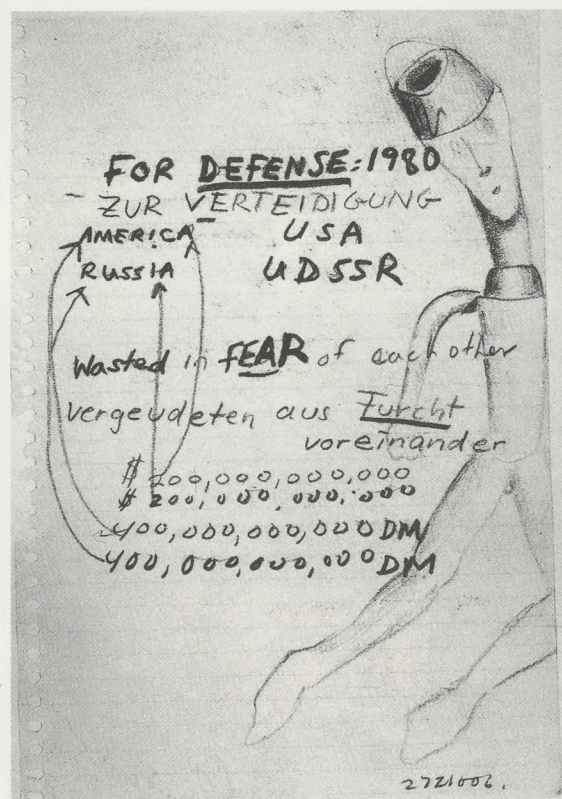 FOR DEFENSE: 1980
ZUR VERTEIDIGUNG
AMERICA USA
RUSSIA UDSSR
Wasted in FEAR of each other
vergeudeten aus Furcht
voreinander
$ 200,000,000,000
$ 200,000,000,000
400,000,000,000 DM
400,000,000,000 DM
2721006.